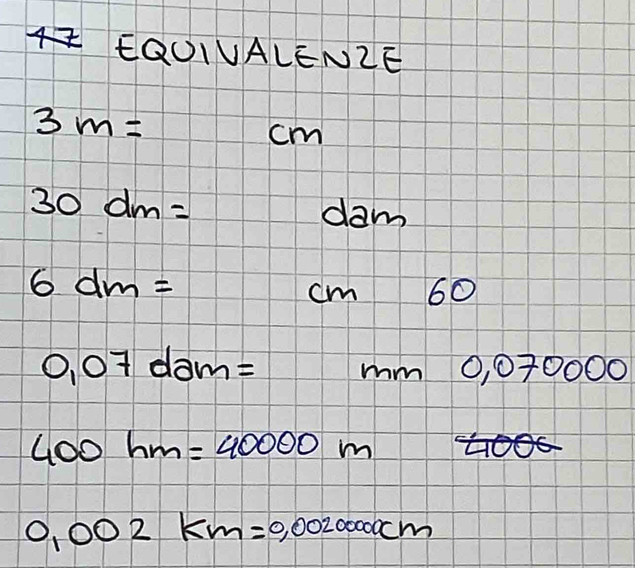 17 EQUIVALENZE
3 m = cm
30 dm = dam
6 dm = cm 60
0,07 dam = mm 0,070000
400 hm = 40000 m 4000
0,002 Km = 0,00200000cm